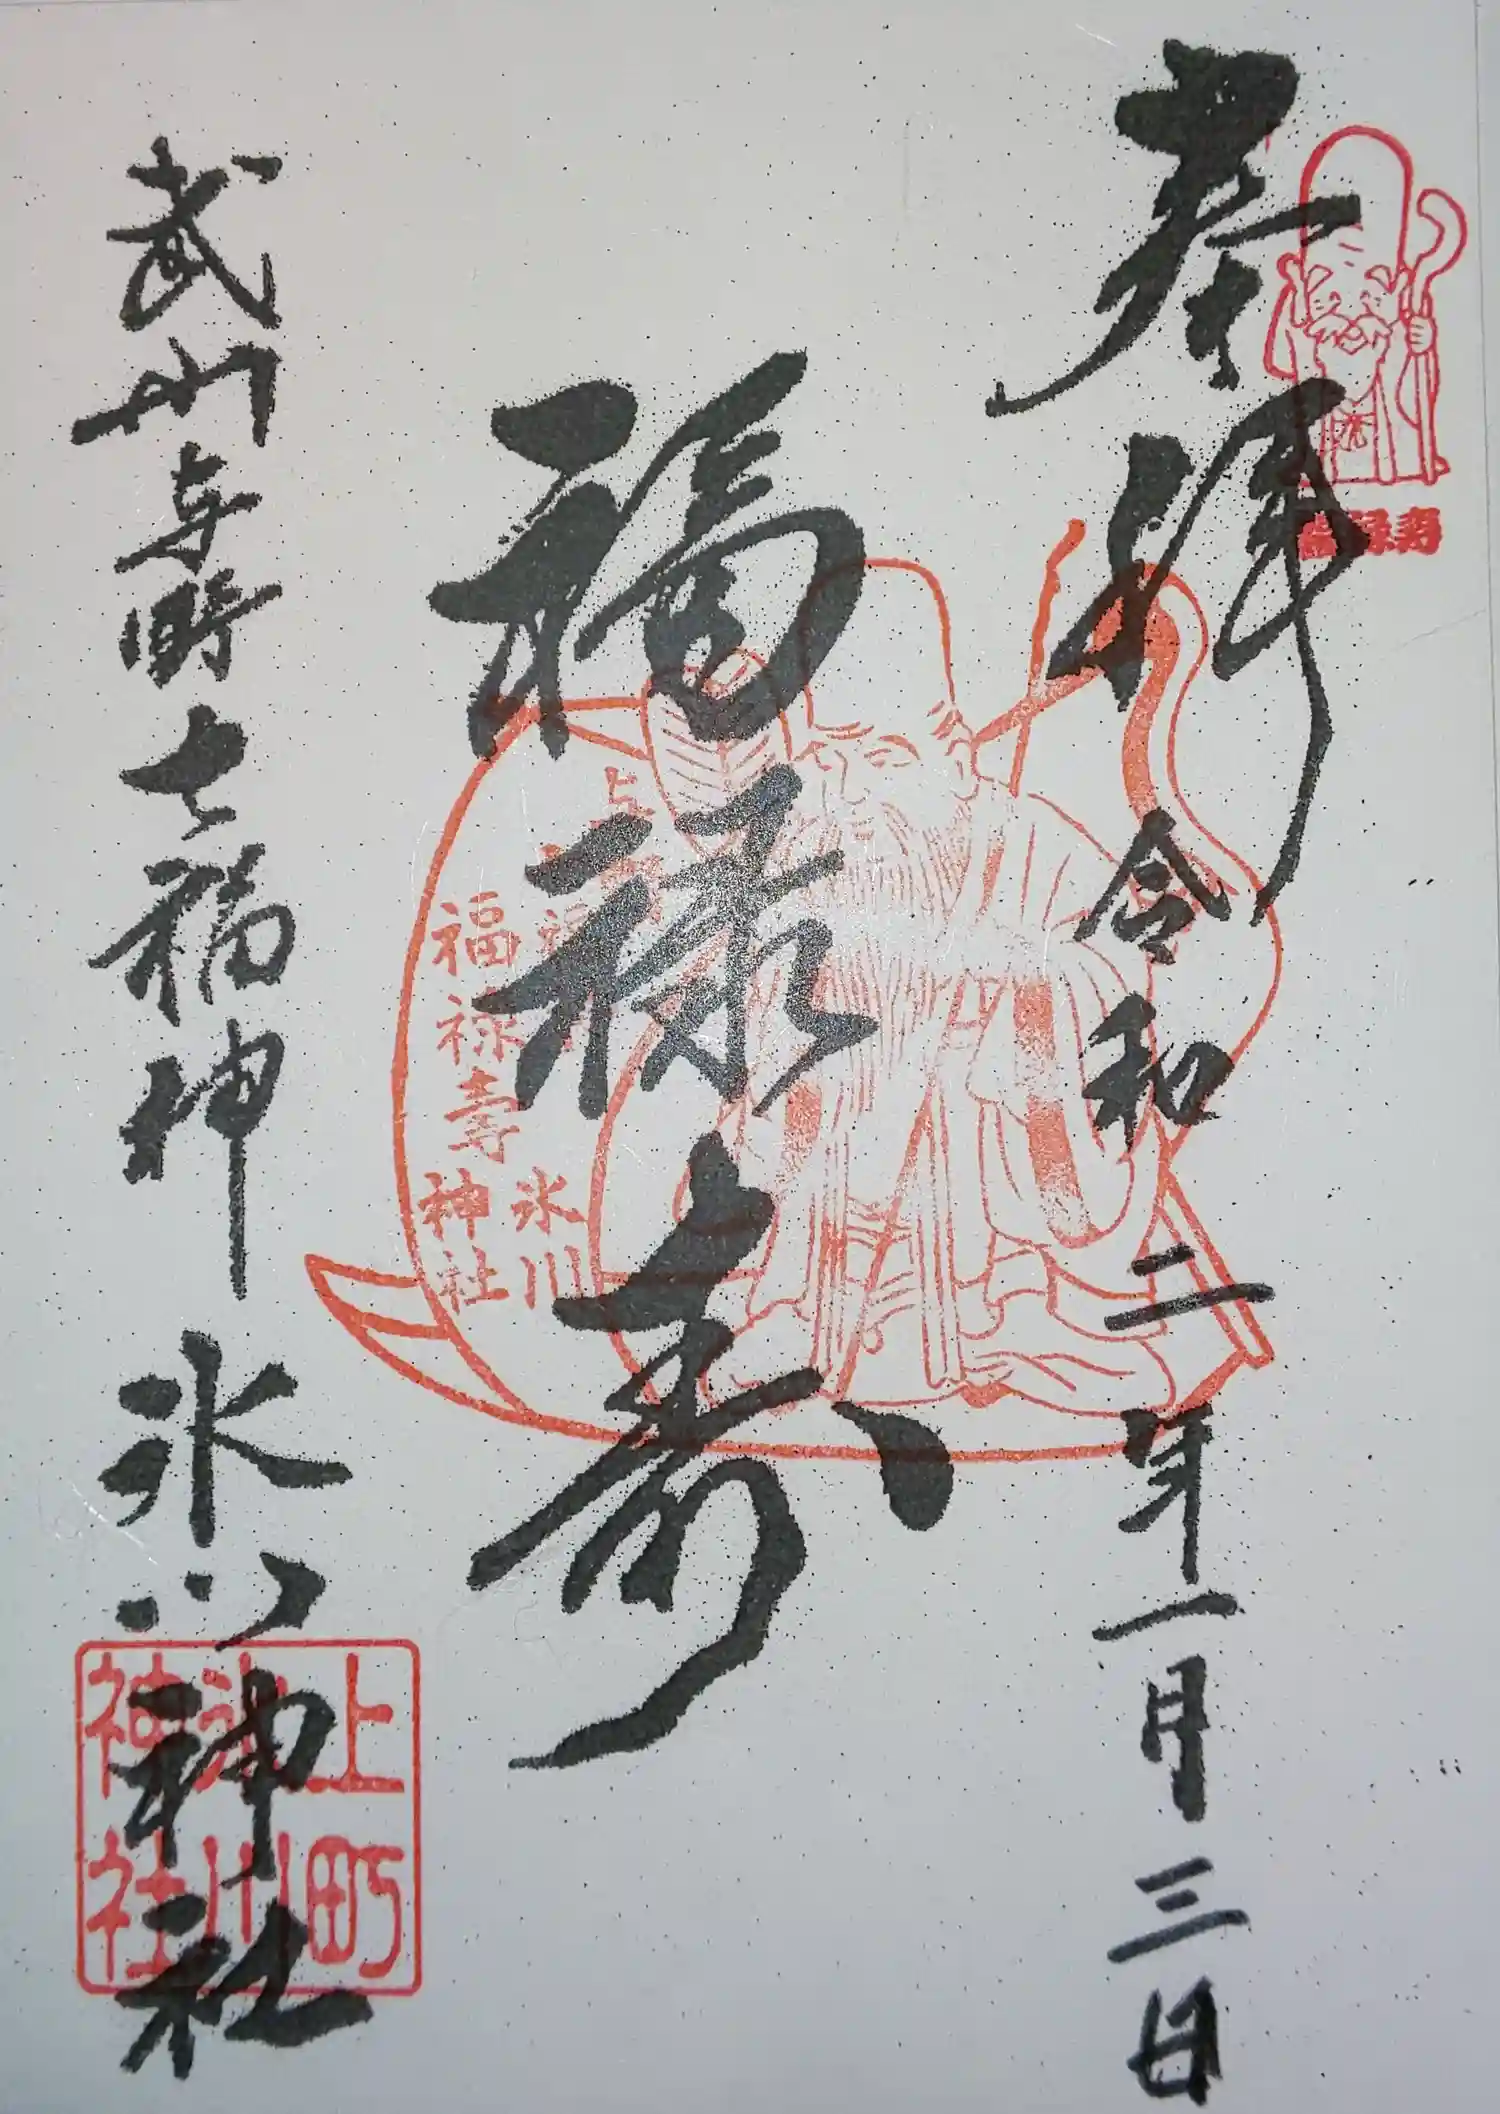 奉拝
令和二年一月三日
福禄寿
武州与野七福神
氷川神社
福禄壽
氷川
神社
上町
氷川
神社